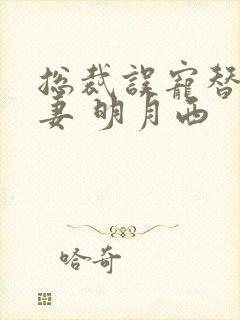 总裁误宠替
妻 明月西
哈奇